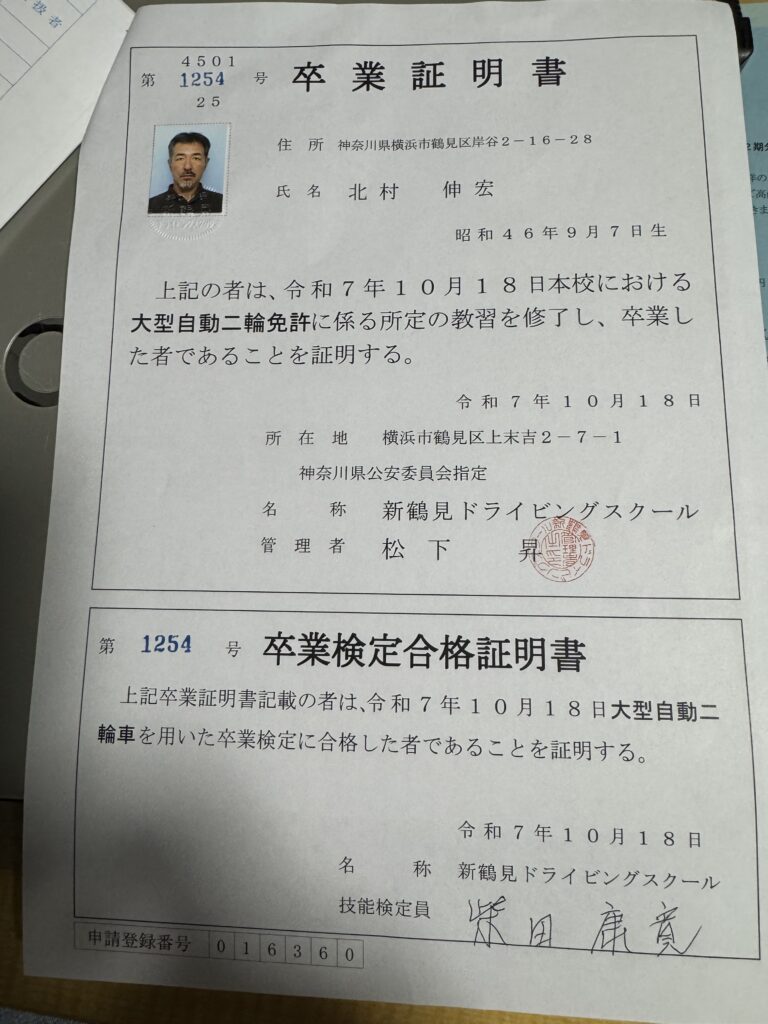 扱者
4501
第 1254 号 卒業証明書
25
住所 神奈川県横浜市鶴見区岸谷2－16－28
氏名 北村 伸宏
昭和46年9月7日生
上記の者は、令和7年10月18日本校における
大型自動二輪免許に係る所定の教習を修了し、卒業し
た者であることを証明する。
令和7年10月18日
所在地 横浜市鶴見区上末吉2－7－1
神奈川県公安委員会指定
名称 新鶴見ドライビングスクール
管理者 松下 昇
第 1254 号 卒業検定合格証明書
上記卒業証明書記載の者は、令和7年10月18日大型自動二
輪車を用いた卒業検定に合格した者であることを証明する。
令和7年10月18日
名称 新鶴見ドライビングスクール
技能検定員 柴田 康寛
申請登録番号 016360